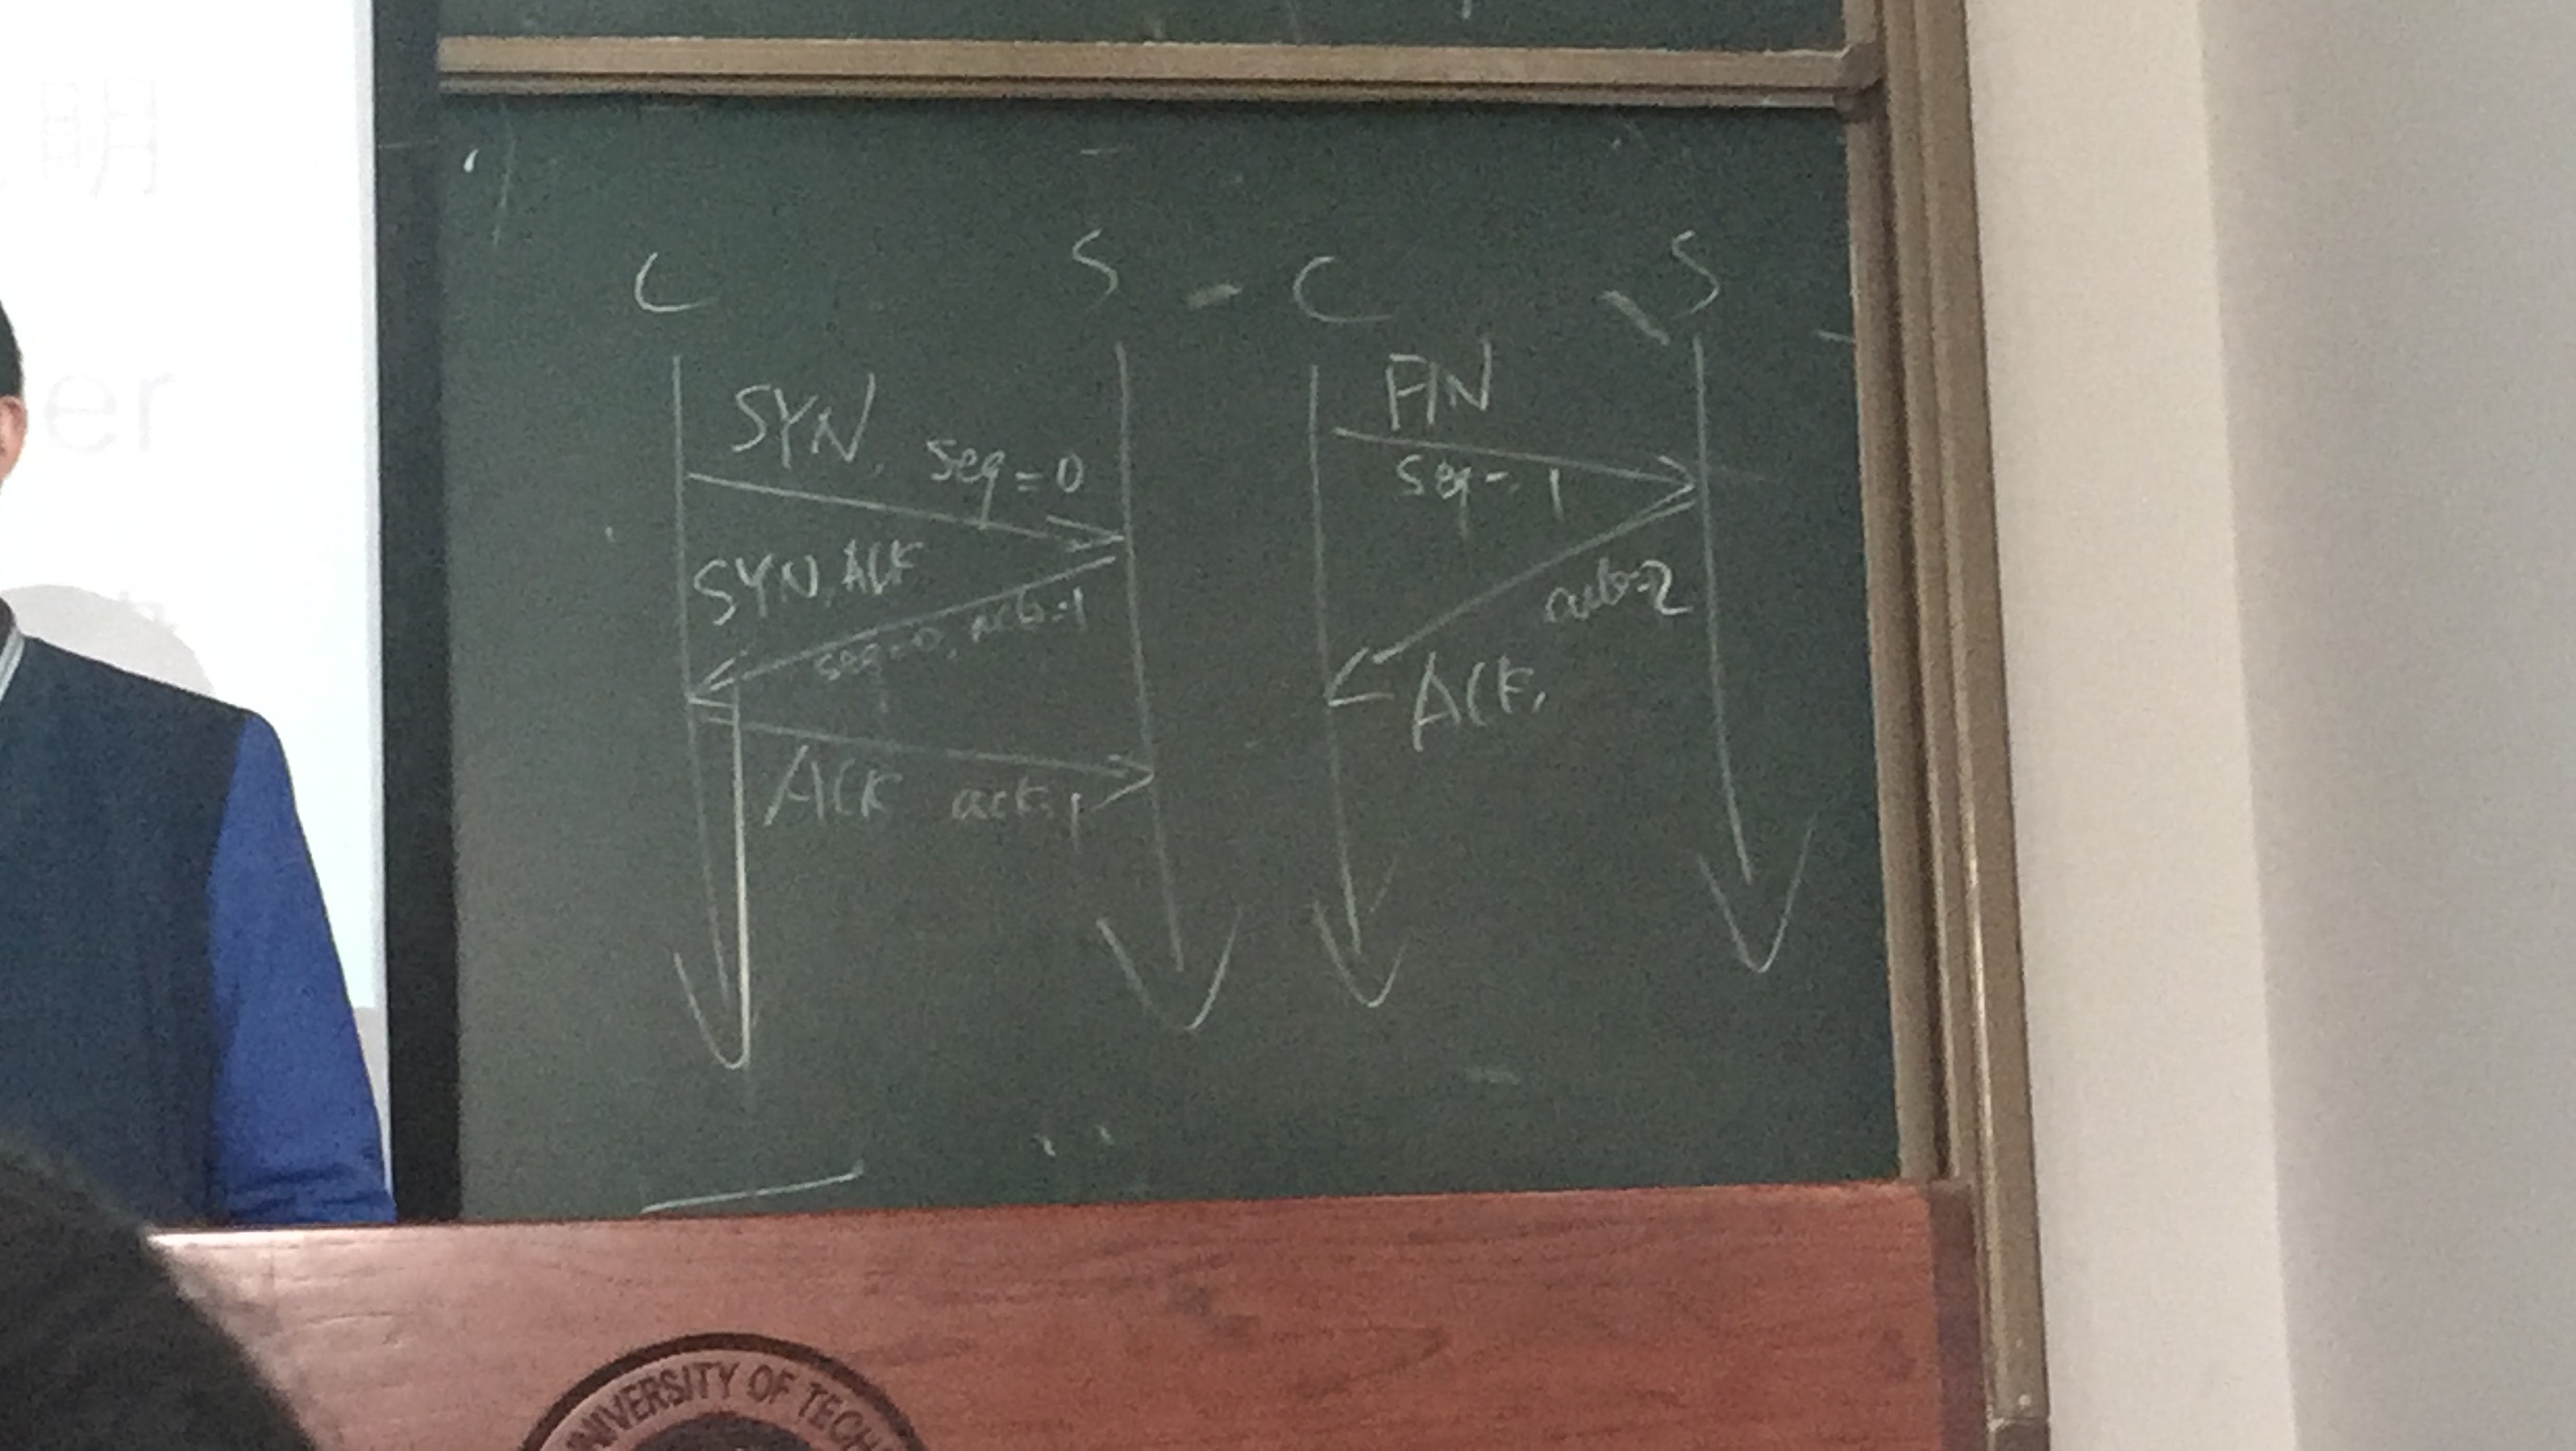 明
er
C S C S
SYN, seq=0
SYN, ACK
seq=0, ack=1
ACK ack=1
FIN
seq=1
ack=2
ACK,
UNIVERSITY OF TECH